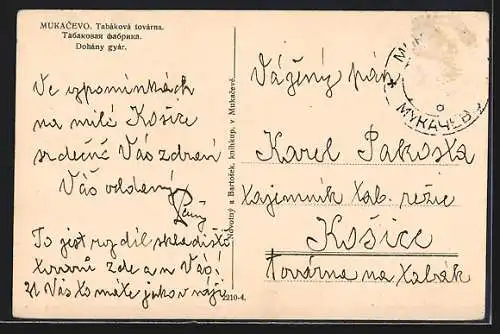 MUKAČEVO. Tabáková továrna.
Табаковая фабрика.
Dohány gyár.
Ve vzpomínkách
na milé Košice
srdečně Vás zdraví
Váš oddaný
To jest rozdíl skladiště
tovarů zde a u Vás!
U Vás to máte jako v ráji
Novotný a Bartošek, knihkup. v Mukačevě.
2210-4.
МУКАЧЕВО
Vážený pán
Karel Pakosta
tajemník tab. režie
Košice
Továrna na tabák